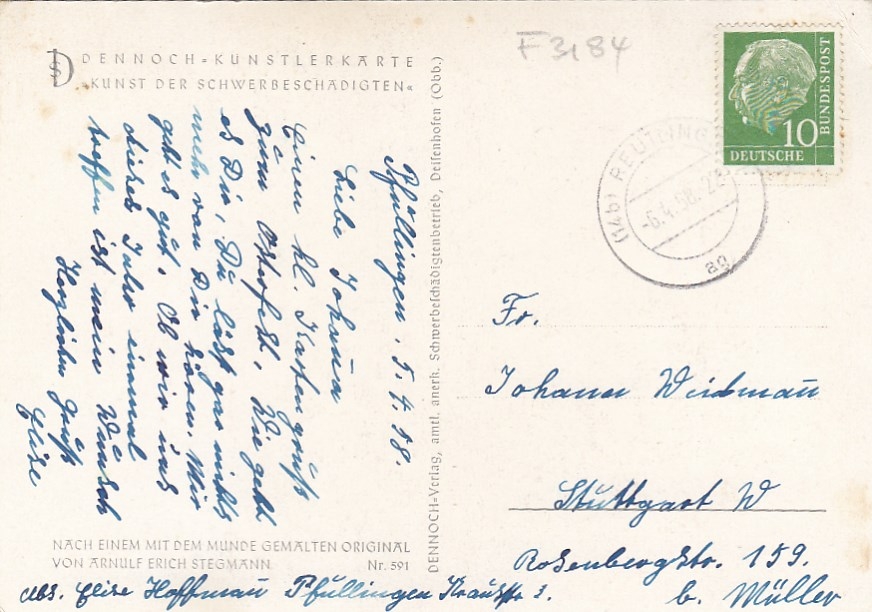 DENNOCH-KÜNSTLERKARTE
„KUNST DER SCHWERBESCHÄDIGTEN“
F 3184
DEUTSCHE
BUNDESPOST
10
(14b) REUTLING
-6.4.58.-2
ag
Pfullingen, 5.4.58.
Liebe Johanna
Einen kl. Kartengruß
zum Osterfest. Wie geht
es Dir, Du läßt gar nichts
mehr von Dir hören. Mir
geht es gut. Ob wir uns
dieses Jahr einmal
treffen ist mein Wunsch
Herzlichen Gruß
Elise
DENNOCH-Verlag, amtl. anerk. Schwerbeschädigtenbetrieb, Deisenhofen (Obb.)
NACH EINEM MIT DEM MUNDE GEMALTEN ORIGINAL
VON ARNULF ERICH STEGMANN
Nr. 591
Abs. Elise Hoffmann Pfullingen 3.
Fr.
Johanna
Stuttgart W
Rosenbergstr. 159.
b. Müller